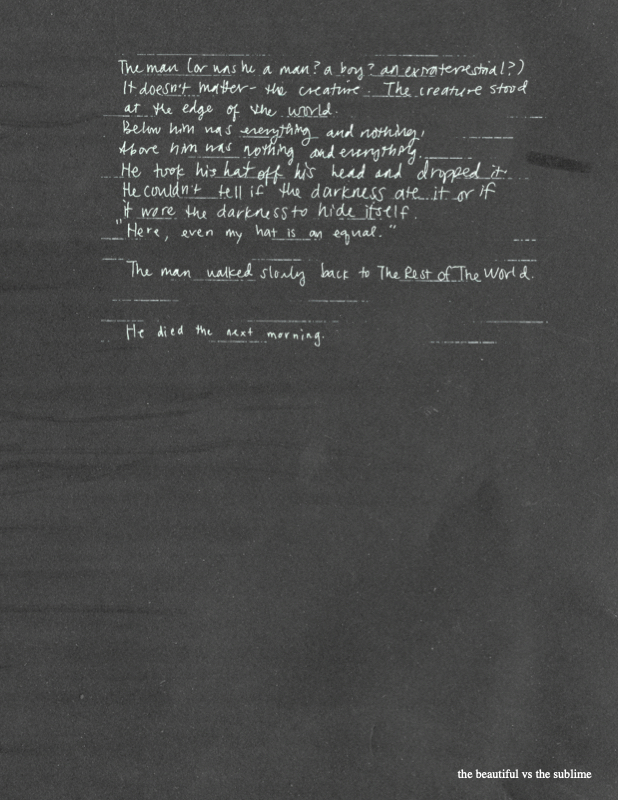 The man (or was he a man? a boy? an extraterrestrial?)
It doesn't matter - the creature. The creature stood
at the edge of the world.
Below him was everything and nothing,
Above him was nothing and everything.
He took his hat off his head and dropped it.
He couldn't tell if the darkness ate it or if
it wore the darkness to hide itself.
"Here, even my hat is an equal."
The man walked slowly back to The Rest of The World.
He died the next morning.
the beautiful vs the sublime